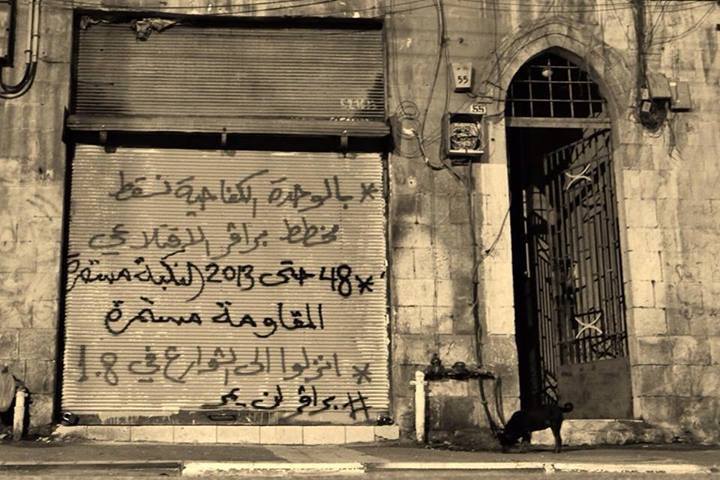 * بالوحدة الكفاحية نسقط
مخطط برافر الاقتلاعي
* 48 حتى 2013 النكبة مستمرة
المقاومة مستمرة
* انزلوا الى الشوارع في 1.8
# برافر لن يمر
55
55